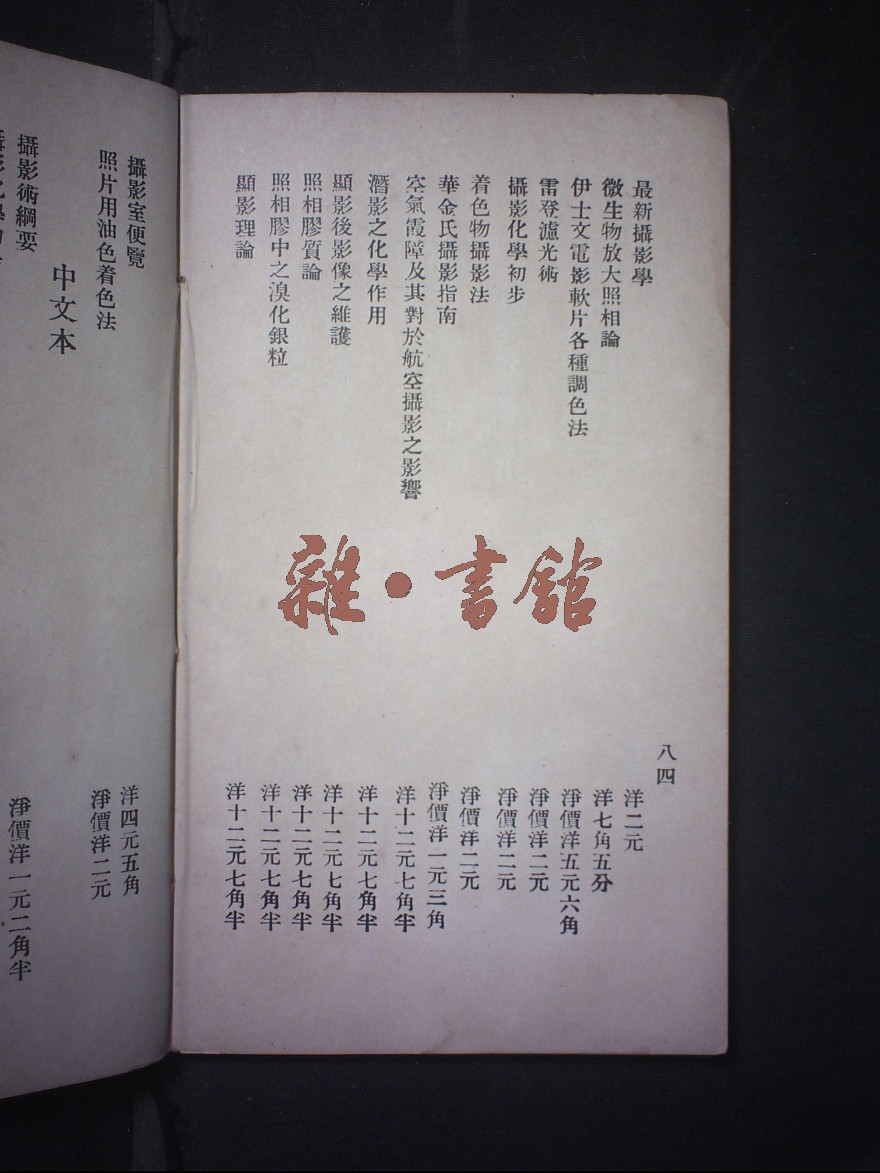 八四
最新攝影學 洋二元
微生物放大照相論 洋七角五分
伊士文電影軟片各種調色法 淨價洋五元六角
雷登濾光術 淨價洋二元
攝影化學初步 淨價洋二元
着色物攝影法 淨價洋二元
華金氏攝影指南 淨價洋一元三角
空氣霞障及其對於航空攝影之影響 洋十二元七角半
潛影之化學作用 洋十二元七角半
顯影後影像之維護 洋十二元七角半
照相膠質論 洋十二元七角半
照相膠中之溴化銀粒 洋十二元七角半
顯影理論 洋十二元七角半
雜·書館
攝影室便覽 洋四元五角
照片用油色着色法 淨價洋二元
中文本
攝影術綱要 淨價洋一元二角半